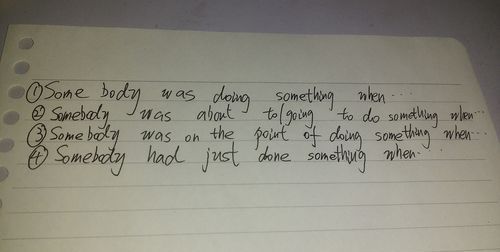 ① Some body was doing something when....
② Somebody was about to/going to do something when...
③ Somebody was on the point of doing something when...
④ Somebody had just done something when...